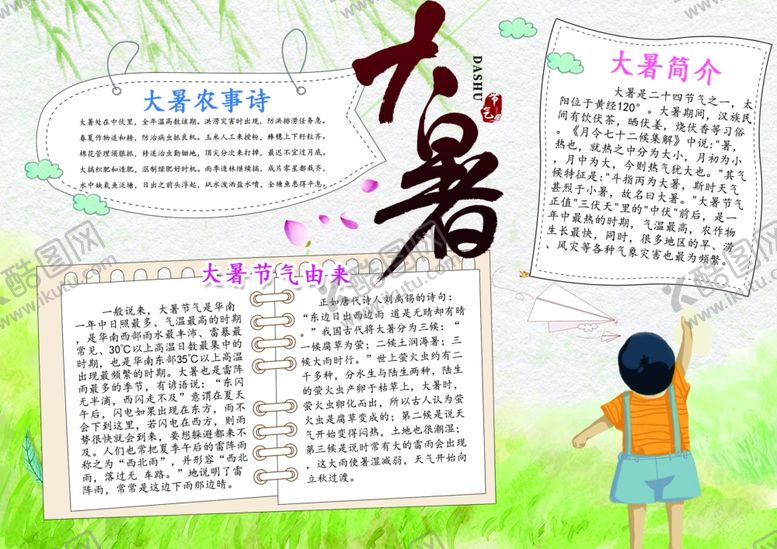 大暑
DASHU
节气
大暑农事诗
大暑处在中伏里,全年温高数该期。洪涝灾害时出现,防洪排涝任务急。
春夏作物追和耪,防治病虫抓良机。玉米人工来授粉,棒穗上下籽粒齐。
棉花管理须狠抓,修追治虫勤锄地,顶尖分次来打掉,最迟不宜过月底。
大搞积肥和造肥,沤制绿肥好时机。雨季造林继续搞,成片零星都栽齐。
水中缺氧鱼泛塘,日出之前头浮起,矾水泼洒盐水喷,全塘鱼患得平息。
大暑简介
大暑是二十四节气之一,太
阳位于黄经120°。大暑期间,汉族民
间有饮伏茶,晒伏姜,烧伏香等习俗
。《月令七十二候集解》中说:"暑,
热也,就热之中分为大小,月初为小
,月中为大,今则热气犹大也。"其气
候特征是:"斗指丙为大暑,斯时天气
甚烈于小暑,故名曰大暑。"大暑节气
正值"三伏天"里的"中伏"前后,是一
年中最热的时期,气温最高,农作物
生长最快,同时,很多地区的旱、涝
、风灾等各种气象灾害也最为频繁。
大暑节气由来
一般说来,大暑节气是华南
一年中日照最多、气温最高的时期
,是华南西部雨水最丰沛、雷暴最
常见、30℃以上高温日数最集中的
时期,也是华南东部35℃以上高温
出现最频繁的时期。大暑也是雷阵
雨最多的季节,有谚语说:"东闪
无半滴,西闪走不及"意谓在夏天
午后,闪电如果出现在东方,雨不
会下到这里,若闪电在西方,则雨
势很快就会到来,要想躲避都来不
及。人们也常把夏季午后的雷阵雨
称之为"西北雨",并形容"西北
雨,落过无 车路。"地说明了雷
阵雨,常常是这边下雨那边晴。
正如唐代诗人刘禹锡的诗句:
"东边日出西边雨 道是无晴却有晴
。"我国古代将大暑分为三候:"
一候腐草为萤;二候土润溽暑;三
候大雨时行。"世上萤火虫约有二
千多种,分水生与陆生两种,陆生
的萤火虫产卵于枯草上,大暑时,
萤火虫卵化而出,所以古人认为萤
火虫是腐草变成的;第二候是说天
气开始变得闷热,土地也很潮湿;
第三候是说时常有大的雷雨会出现
,这大雨使暑湿减弱,天气开始向
立秋过渡。